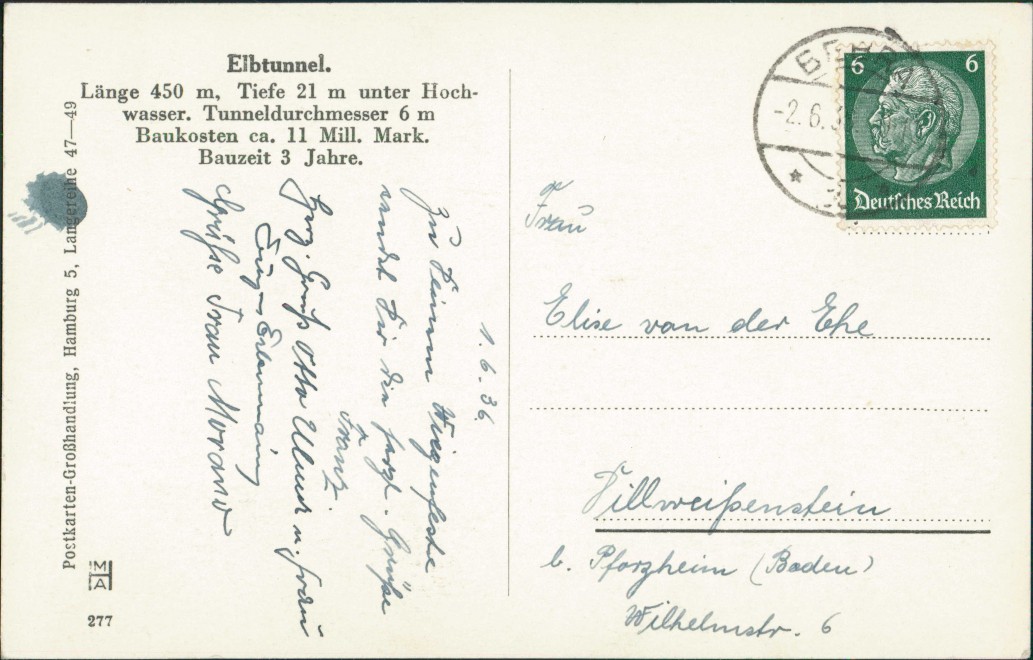 Elbtunnel.
Länge 450 m, Tiefe 21 m unter Hoch-
wasser. Tunneldurchmesser 6 m
Baukosten ca. 11 Mill. Mark.
Bauzeit 3 Jahre.
Postkarten-Großhandlung, Hamburg 5, Langereihe 47—49
M
A
277
1.6.36
Zu Deinem Wiegenfeste
sendet Dir die herzl. Grüße
Franz
Herz. Gruß Otto u. Frau
Grüße Frau Morano
-2.6.3
6 6
Deutsches Reich
Frau
Elise van der Ehe
Dillweißenstein
b. Pforzheim (Baden)
Wilhelmstr. 6